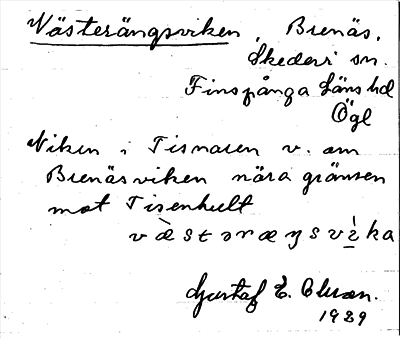 Västerängsviken, Brenäs,
Skedevi sn.
Finspånga läns hd
Ögl
Viken i Tisnaren v. om
Brenäsviken nära gränsen
mot Tisenhult
væ̀stəræŋsvì̱ka
Gustaf E.
1929